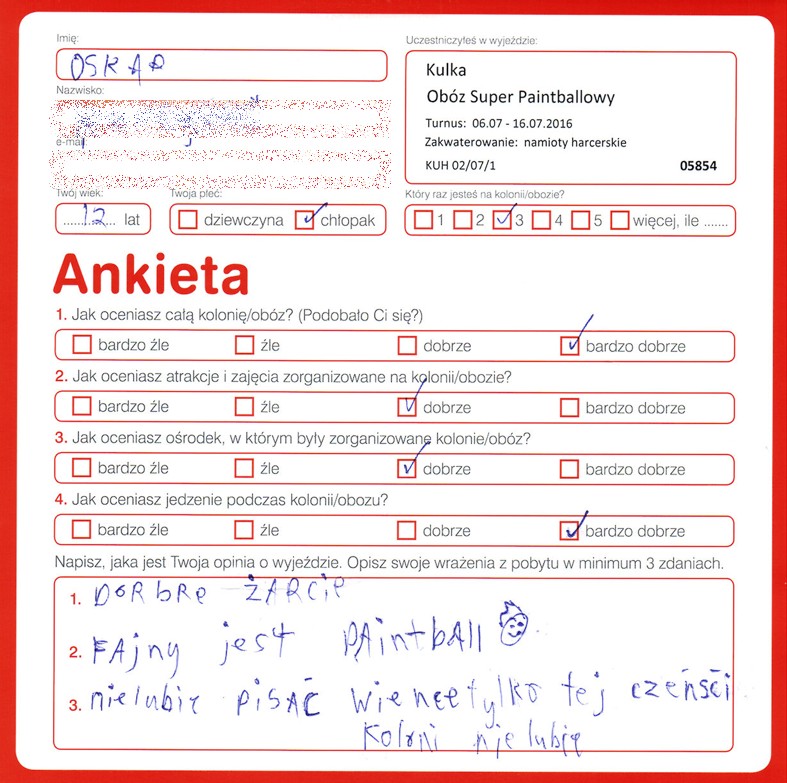 Imię:
OSKAR
Nazwisko:
e-mail
Twój wiek:
12 lat
Twoja płeć:
dziewczyna chłopak
Uczestniczyłeś w wyjeździe:
Kulka
Obóz Super Paintballowy
Turnus: 06.07 - 16.07.2016
Zakwaterowanie: namioty harcerskie
KUH 02/07/1 05854
Który raz jesteś na kolonii/obozie?
1 2 3 4 5 więcej, ile .......
Ankieta
1. Jak oceniasz całą kolonię/obóz? (Podobało Ci się?)
bardzo źle źle dobrze bardzo dobrze
2. Jak oceniasz atrakcje i zajęcia zorganizowane na kolonii/obozie?
bardzo źle źle dobrze bardzo dobrze
3. Jak oceniasz ośrodek, w którym były zorganizowane kolonie/obóz?
bardzo źle źle dobrze bardzo dobrze
4. Jak oceniasz jedzenie podczas kolonii/obozu?
bardzo źle źle dobrze bardzo dobrze
Napisz, jaka jest Twoja opinia o wyjeździe. Opisz swoje wrażenia z pobytu w minimum 3 zdaniach.
1. DORbRe ŻARCie
2. FAjny jest PAintbAll
3. nielubię pisAć tylko tej czeńści
Koloni nie lubię